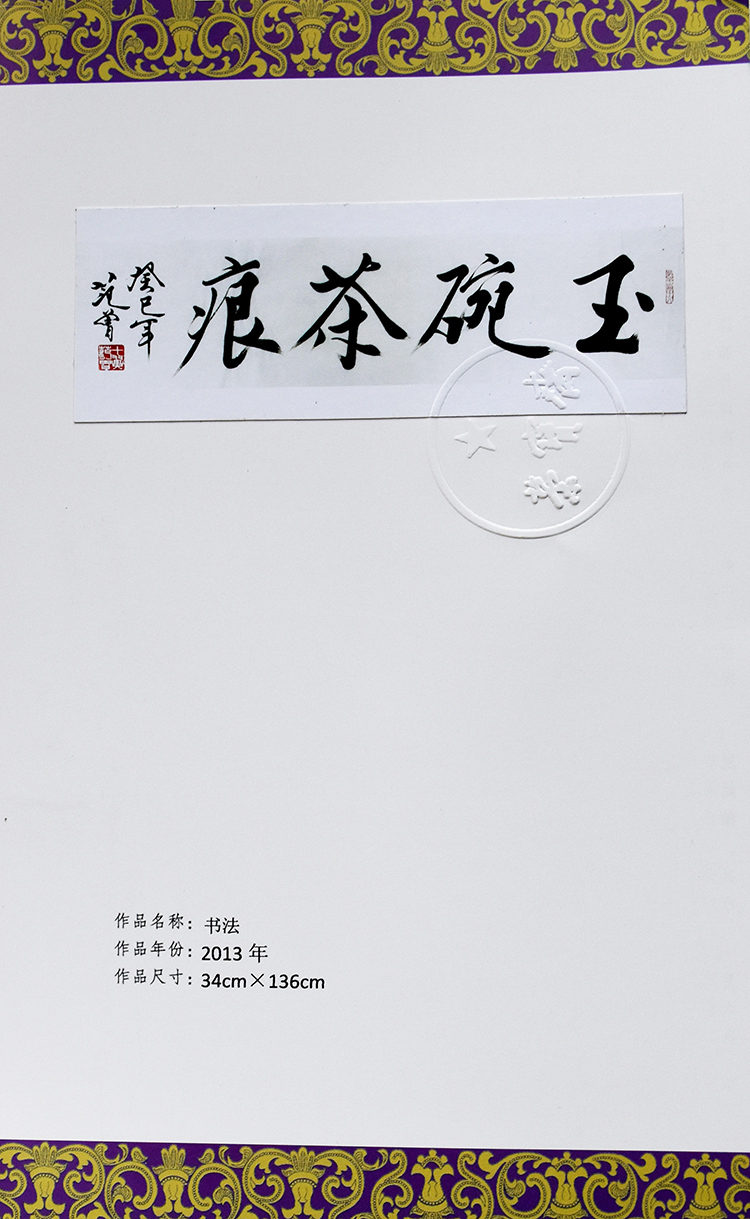 玉碗茶痕
癸巳年
范曾
作品名称：书法
作品年份：2013 年
作品尺寸：34cm×136cm